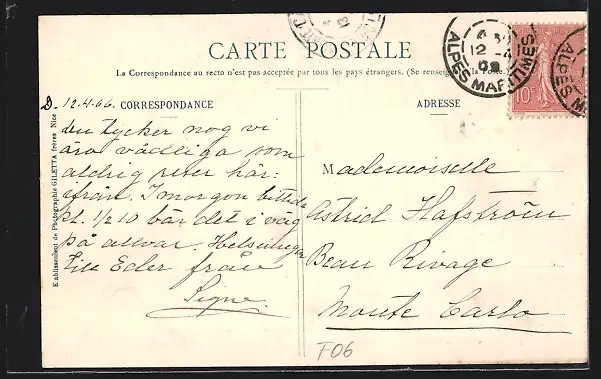 CARTE POSTALE
La Correspondance au recto n'est pas acceptée par tous les pays étrangers. (Se renseigner à la Poste
CORRESPONDANCE
ADRESSE
D. 12.4.06.
Du tycker nog vi
äro vådliga som
aldrig reser här:
ifrån. I morgon bittida
kl. 1/2 10 bär det i väg
på allvar. Helsningar
till Eder från
Signe.
Mademoiselle
Astrid Hafström
Beau Rivage
Monte Carlo
F06
Etablissement de Photographie GILETTA frères Nice
12 -4
ALPES MAR
10c